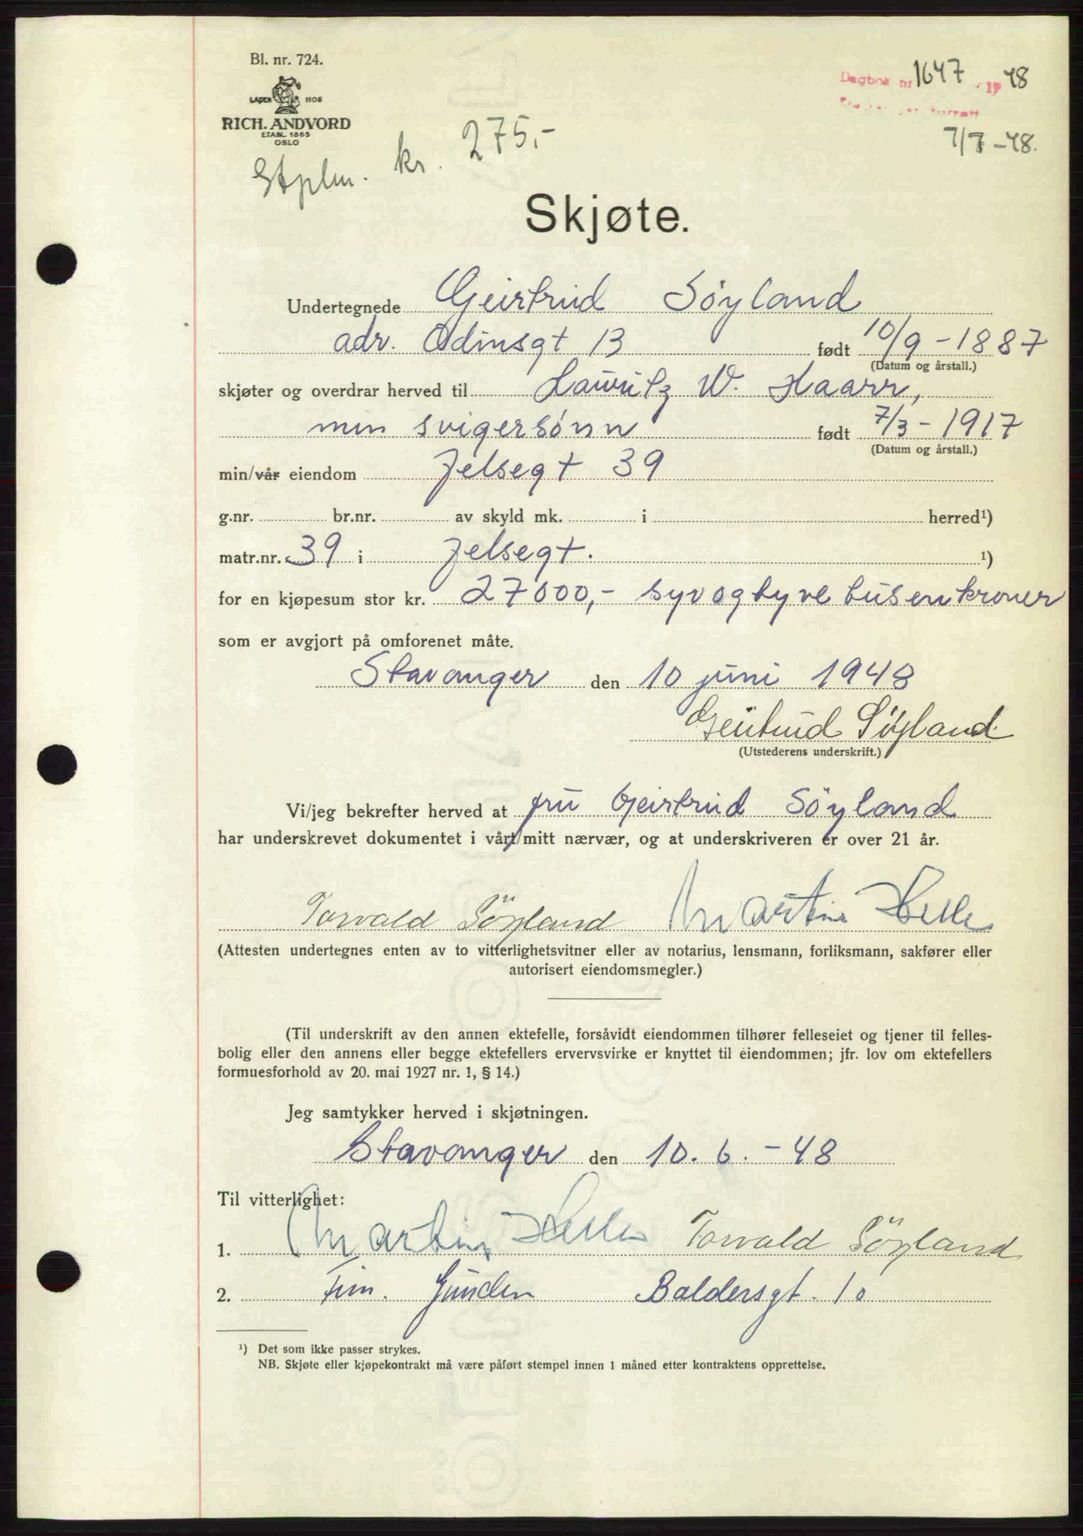 Bl. nr. 724.
LAGER HOS
RICH. ANDVORD
ETABL. 1865
OSLO
Dagbok nr 1647 - 1948
7/7-48.
Stplm. kr. 275,-
Skjøte.
Undertegnede Geirtrud Söyland
adr. Odinsgt 13 født 10/9-1887
(Datum og årstall.)
skjøter og overdrar herved til Lauritz W. Haarr,
min svigersönn født 7/3-1917
(Datum og årstall.)
min/vår eiendom Jelsegt 39
g.nr. br.nr. av skyld mk. i herred¹)
matr.nr. 39 i Jelsegt. ¹)
for en kjøpesum stor kr. 27000,- syvogtyvetusenkroner
som er avgjort på omforenet måte.
Stavanger den 10 juni 1948
Geirtrud Söyland
(Utstederens underskrift.)
Vi/jeg bekrefter herved at fru Geirtrud Söyland
har underskrevet dokumentet i vårt/mitt nærvær, og at underskriveren er over 21 år.
Torvald Söyland Martin Helle
(Attesten undertegnes enten av to vitterlighetsvitner eller av notarius, lensmann, forliksmann, sakfører eller
autorisert eiendomsmegler.)
(Til underskrift av den annen ektefelle, forsåvidt eiendommen tilhører felleseiet og tjener til felles-
bolig eller den annens eller begge ektefellers ervervsvirke er knyttet til eiendommen; jfr. lov om ektefellers
formuesforhold av 20. mai 1927 nr. 1, § 14.)
Jeg samtykker herved i skjøtningen.
Stavanger den 10. 6. - 48
Til vitterlighet:
1. Martin Helle Torvald Söyland
2. Baldersgt. 10
¹) Det som ikke passer strykes.
NB. Skjøte eller kjøpekontrakt må være påført stempel innen 1 måned etter kontraktens opprettelse.